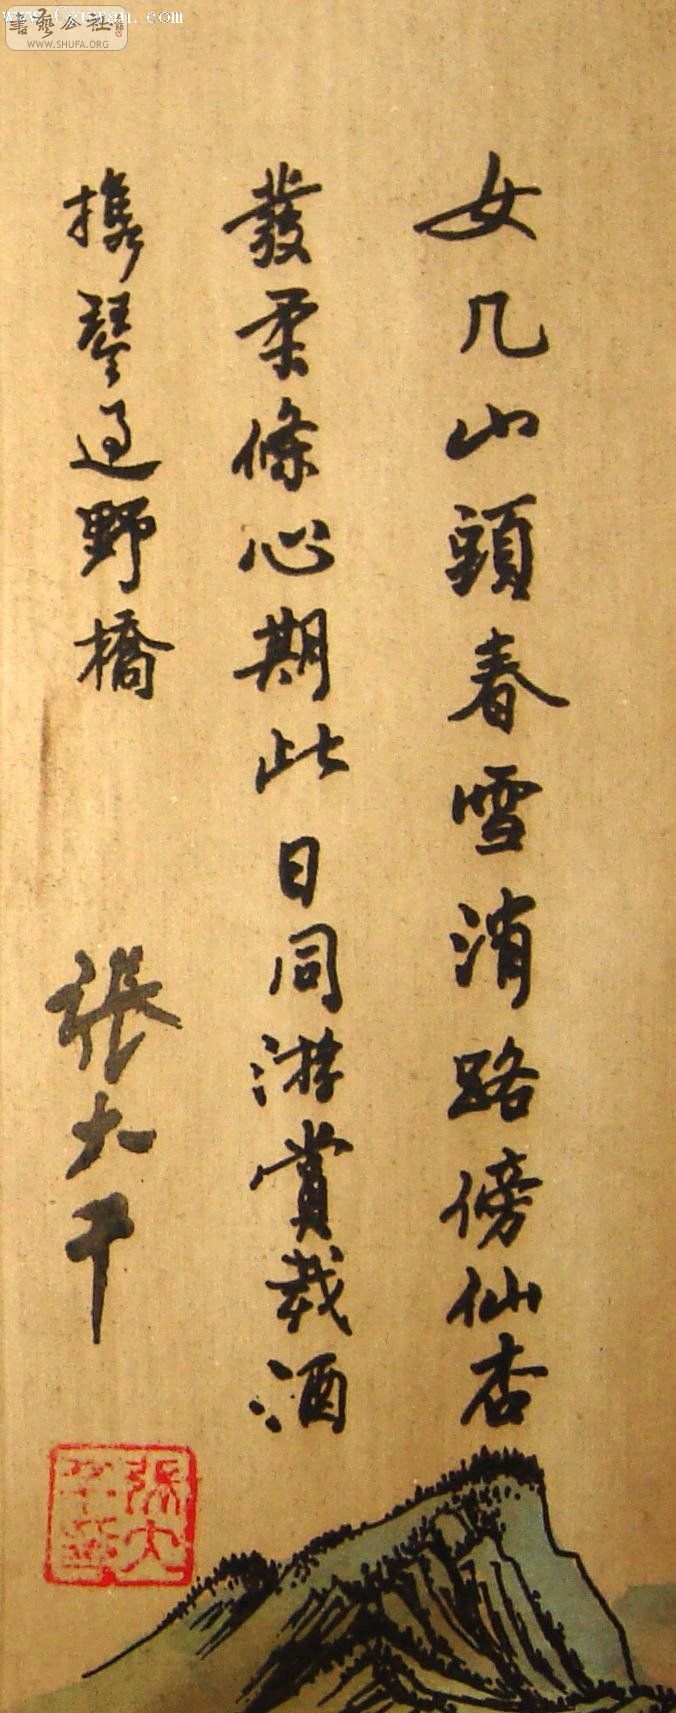 女几山頭春雪消路傍仙杏
發柔條心期此日同游賞載酒
攜琴過野橋
張大千
張大千
www.Cguwan.com
書藝公社
WWW.SHUFA.ORG